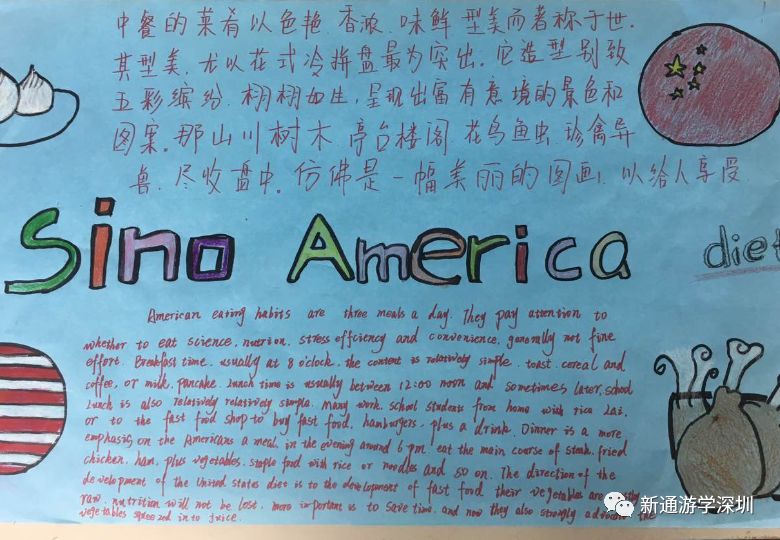 中餐的菜肴以色艳、香浓、味鲜、型美而著称于世.
其型美,尤以花式冷拼盘最为突出。它造型别致
五彩缤纷,栩栩如生,呈现出富有意境的景色和
图案。那山川树木 亭台楼阁 花鸟鱼虫、珍禽异
兽、尽收盘中。仿佛是一幅美丽的图画,以给人享受
Sino America diet
American eating habits are three meals a day. They pay attention to
whether to eat science, nutrion, stress efficiency and convenience, generally not fine
effort. Breakfast time, usually at 8 o'clock, the content is relatively simple. toast. cereal and
coffee, or milk, pancake. Lunch time is usually between 12:00 noon and sometimes later, school
lunch is also relatively relatively simple. Many work, school students from home with rice
or to the fast food shop to buy fast food, hamburgers, plus a drink. Dinner is a more
emphasis on the Americans a meal, in the evening around 6 pm. eat the main course of steak, fried
chicken, ham, plus vegetables, staple food with rice or noodles and so on. The direction of the
development of the United States diet is to the development of fast food their vegetables are
raw, nutrition will not be lost, more important is to save time, and now they also strongly the
vegetables squeezed into juice.
新通游学深圳